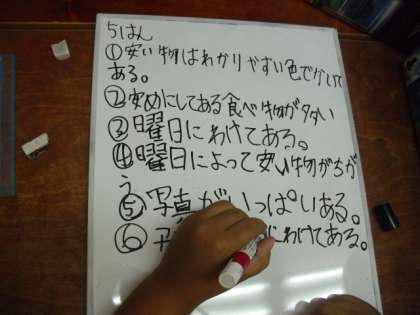 5はん
①安い物はわかりやすい色でかいて
ある。
②安めにしてある食べ物が多い
③曜日にわけてある。
④曜日によって安い物がちが
う
⑤写真がいっぱいある。
⑥ にわけてある。